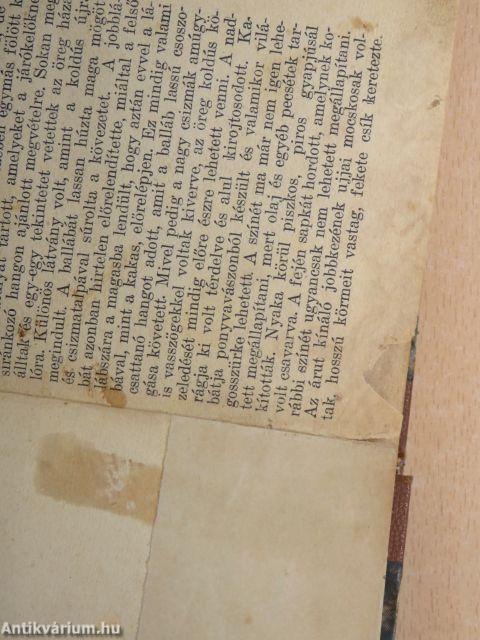 síránkozó hangon ajánlott megvételre. Sokan meg
álltak és egy-egy tekintetet vetettek az öreg háza
lóra. Különös látvány volt, amint a koldús újra
megindult. A ballábát lassan húzta maga mögött
és csizmatalpával súrolta a kövezetet. A jobblá-
bát azonban hirtelen előrelendítette, miáltal a felső
lábszára a magasba lendült, hogy aztán ervvel a lá-
bával, mint a kakas, előrelépjen. Ez mindig valami
csattanó hangot adott, amit a balláb lassú csoszo-
gása követett. Mivel pedig a nagy csizmák amúgy-
is vasszögekkel voltak kiverve, az öreg koldús kö-
zeledését mindig előre észre lehetett venni. A nad-
rágja ki volt térdelve és alul kirojtosodott. Ka-
bátja ponyvavászonból készült és valamikor vilá-
gosszürke lehetett. A színét ma már nem igen lehe-
tett megállapítani, mert olaj és egyéb pecsétek tar-
kították. Nyaka körül piszkos, piros gyapjusál
volt csavarva. A fején sapkát hordott, amelynek ko-
rábbi színét ugyancsak nem lehetett megállapítani.
Az árut kínáló jobbkezének ujjai mocskosak vol-
tak, hosszú körmeit vastag, fekete csík keretezte.
Antikvárium.hu